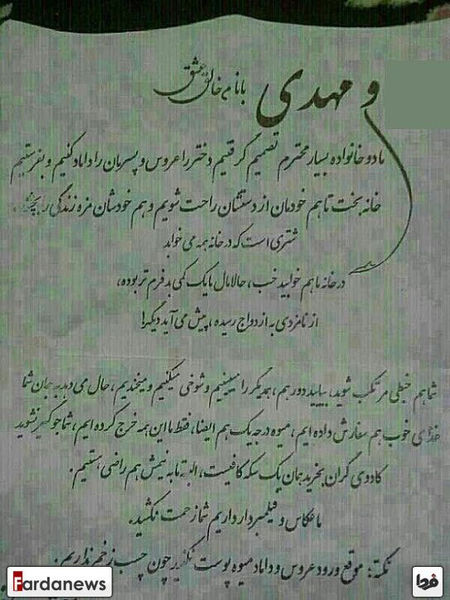 با نام خالق عشق
و مهدی
ما دو خانواده بسیار محترم تصمیم گرفتیم دختر را عروس و پسرمان را داماد کنیم و بفرستیم
خانه بخت تا هم خودمان از دستشان راحت شویم و هم خودشان مزه زندگی را بچشند.
شتری است که در خانه همه می خوابد
در خانه ما هم خوابید خب، حالا مال ما یک کمی بد فرم تر بوده،
از نامزدی به ازدواج رسیده، پیش می آید دیگه!
شما هم خیلی مرتکب شوید، بیایید دور هم، همدیگر را میبینیم و شوخی میکنیم و میخندیم، حال می دهد به جان شما
غذای خوب هم سفارش داده ایم، میوه درجه یک هم ایضا، فقط با این همه خرج کرده ایم، شما جو گیر نشوید
کادوی گران بخرید همان یک سکه کافیست، البته ما به نیمش هم راضی هستیم.
ما عکاس و فیلمبردار داریم شما زحمت نکشید.
نکته: موقع ورود عروس و داماد میوه پوست نگیرید چون چسب زخم نداریم.
Fardanews
فردا